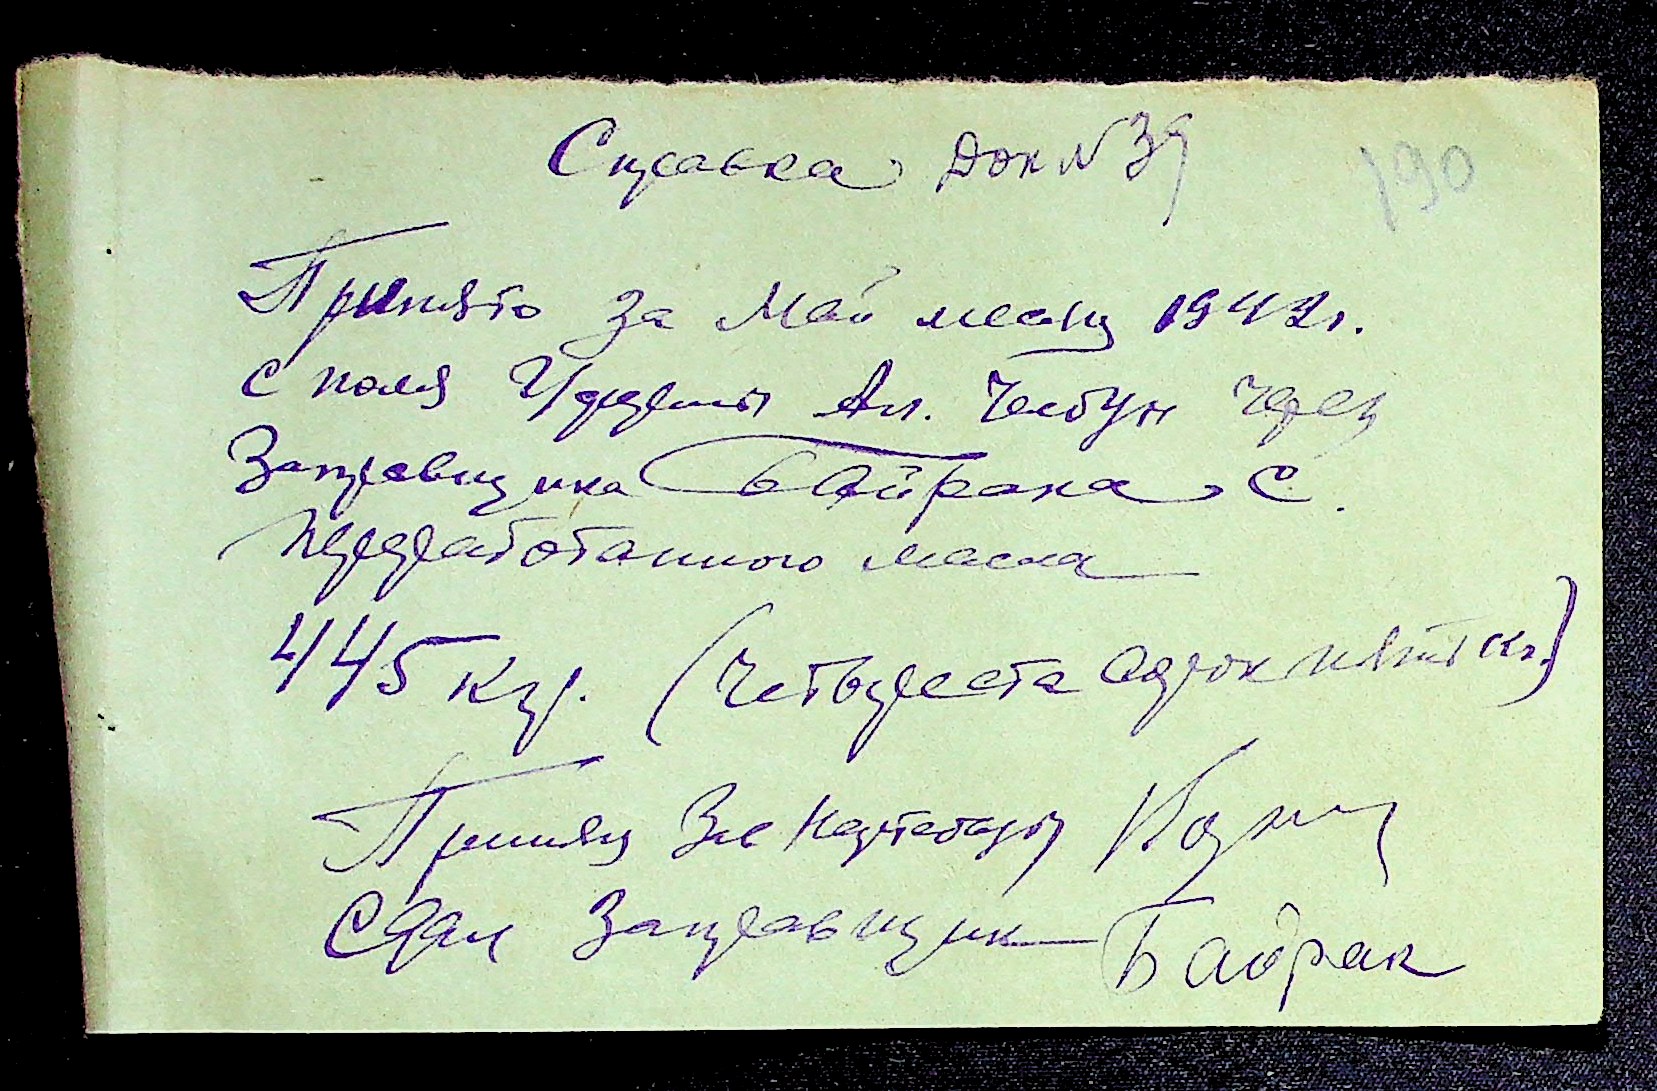 Справка Док N 39
190
Принято за Май месяц 1942г.
с поля Ал. через
Заправщика Байрака С.
переработанного масла
445 кгр. (Четыреста сорок пять кг.)
Принял Зав
Сдал Заправщик Байрак